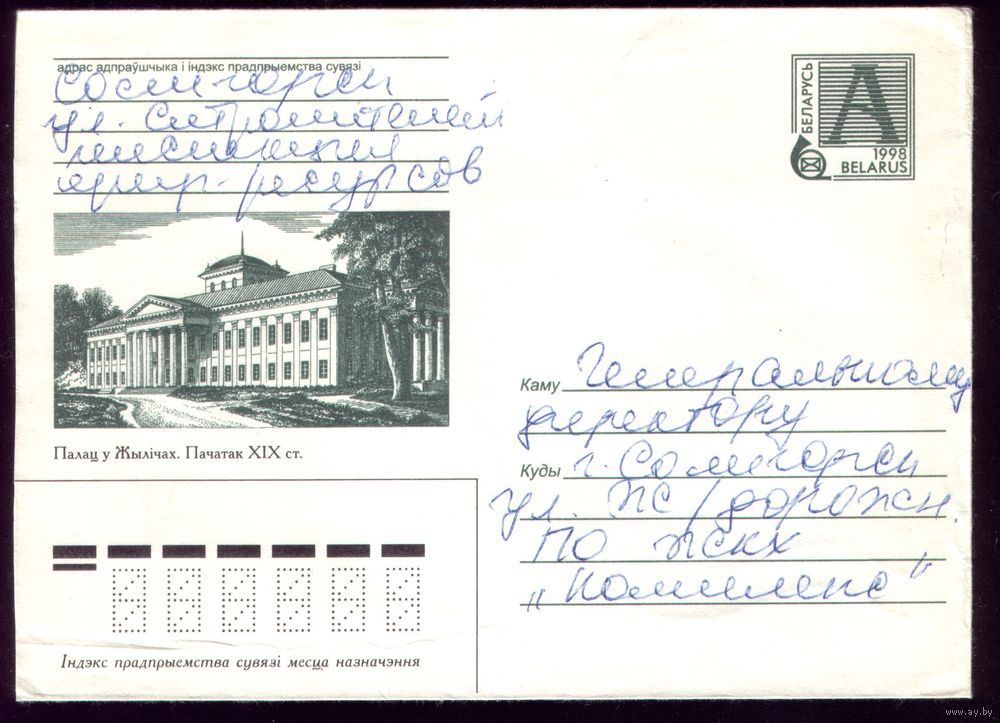 адрас адпраўшчыка і індэкс прадпрыемства сувязі
Солигорск
ул. Строителей
инспекция
прир. ресурсов
БЕЛАРУСЬ
А
1998
BELARUS
Палац у Жылічах. Пачатак XIX ст.
Каму Генеральному
директору
Куды г. Солигорск
ул. Ж/дорожн.
ПО ЖКХ
„Комплекс"
Індэкс прадпрыемства сувязі месца назначэння
www.ay.by